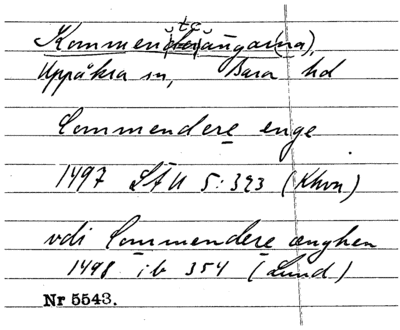 te
Kommenderängar(na),
Uppåkra sn, Bara hd
Commendere enge
1497 LÄU 5:393 (Khvn)
vdi Commendere ænghen
1498 ib 354 (Lund)
Nr 5543.